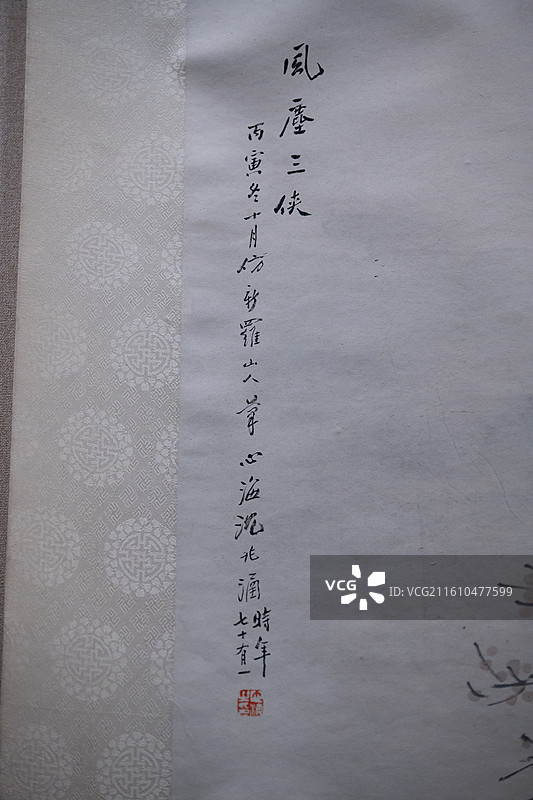 風塵三俠
丙寅冬十月仿新羅山人筆心海沈兆涵時年
七十有一
VCG
ID:VCG211610477599